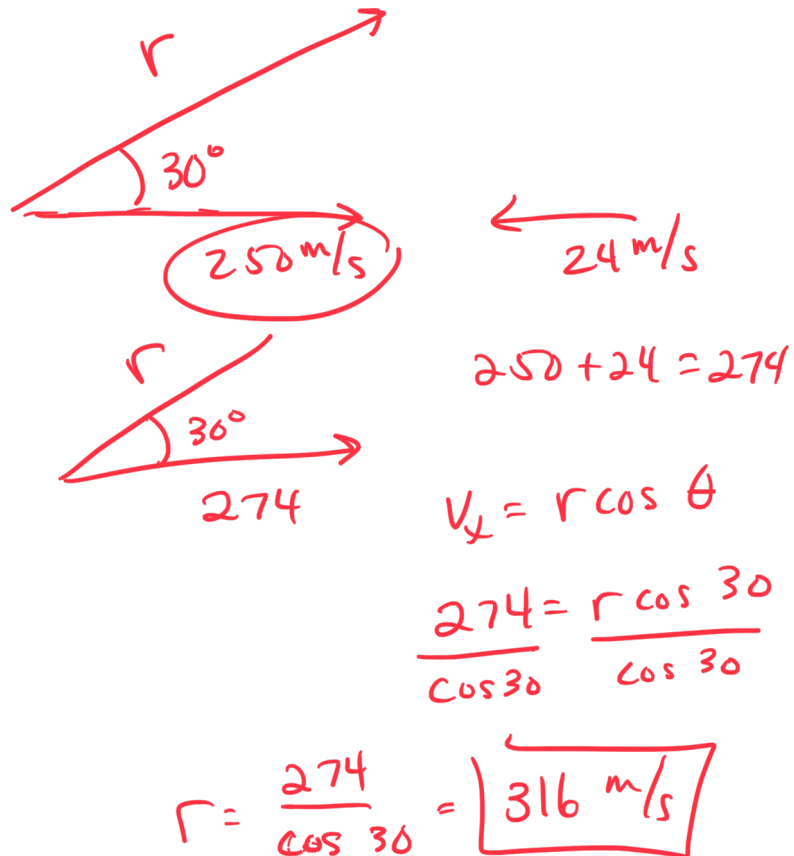 r
30°
250 m/s
24 m/s
250 + 24 = 274
r
30°
274
Vx = r cos θ
274 = r cos 30
cos 30 cos 30
r = 274 / cos 30 = 316 m/s